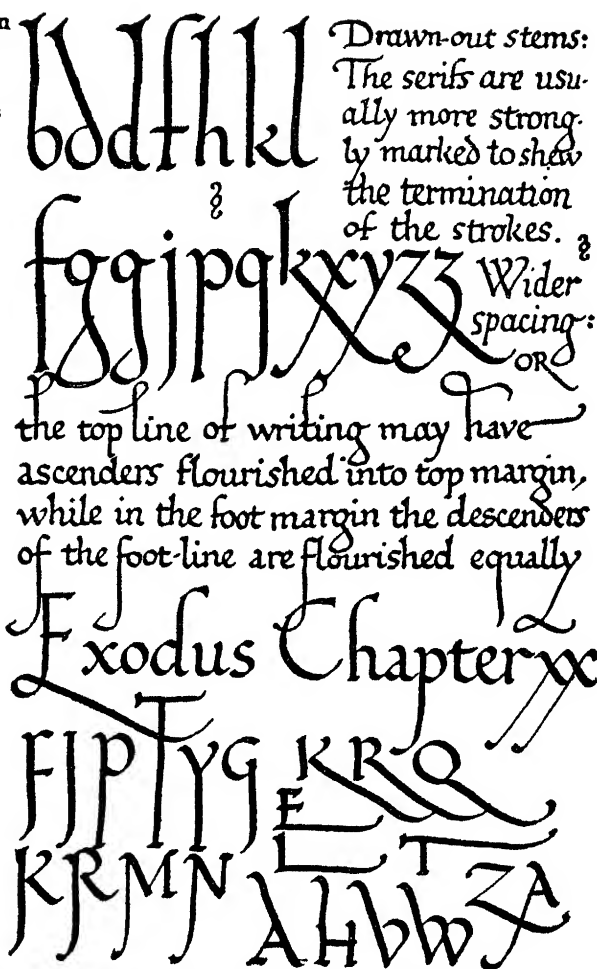 n
bddfhkl
Drawn-out stems:
The serifs are usu-
ally more strong-
ly marked to shew
the termination
of the strokes.
fggjpqkxyzz
Wider
spacing:
OR
the top line of writing may have
ascenders flourished into top margin,
while in the foot margin the descenders
of the foot-line are flourished equally
Exodus Chapter xx
FJPTYG KRQ
E
L T
KRMN ZA
AHVW